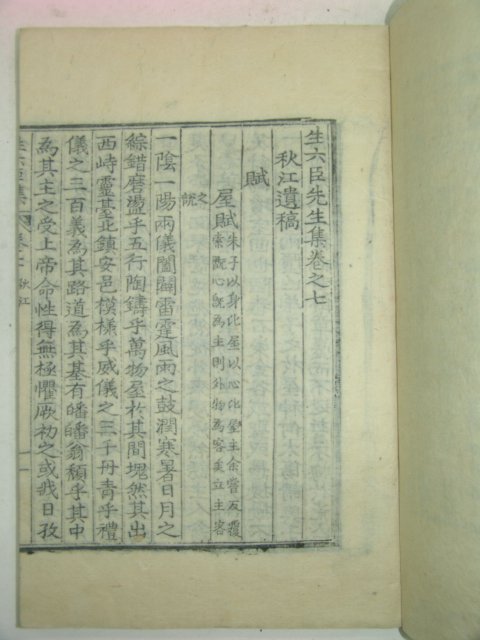 生六臣先生集卷之七
秋江遺稿
賦
屋賦 朱子以身比屋以心比屋主余嘗反覆
索玩心旣為主則外物為客矣立主客
之說
一陰一陽兩儀闔闢雷霆風雨之鼓潤寒暑日月之
綜錯磨盪乎五行陶鑄乎萬物屋於其間塊然其出
西峙靈臺北鎮安邑模㨾乎威儀之三千丹青乎禮
儀之三百義為其路道為其基有皤皤翁頹乎其中
為其主之受上帝命性得無極懼厥初之或戕日孜
生六臣集 卷之七 秋江 一